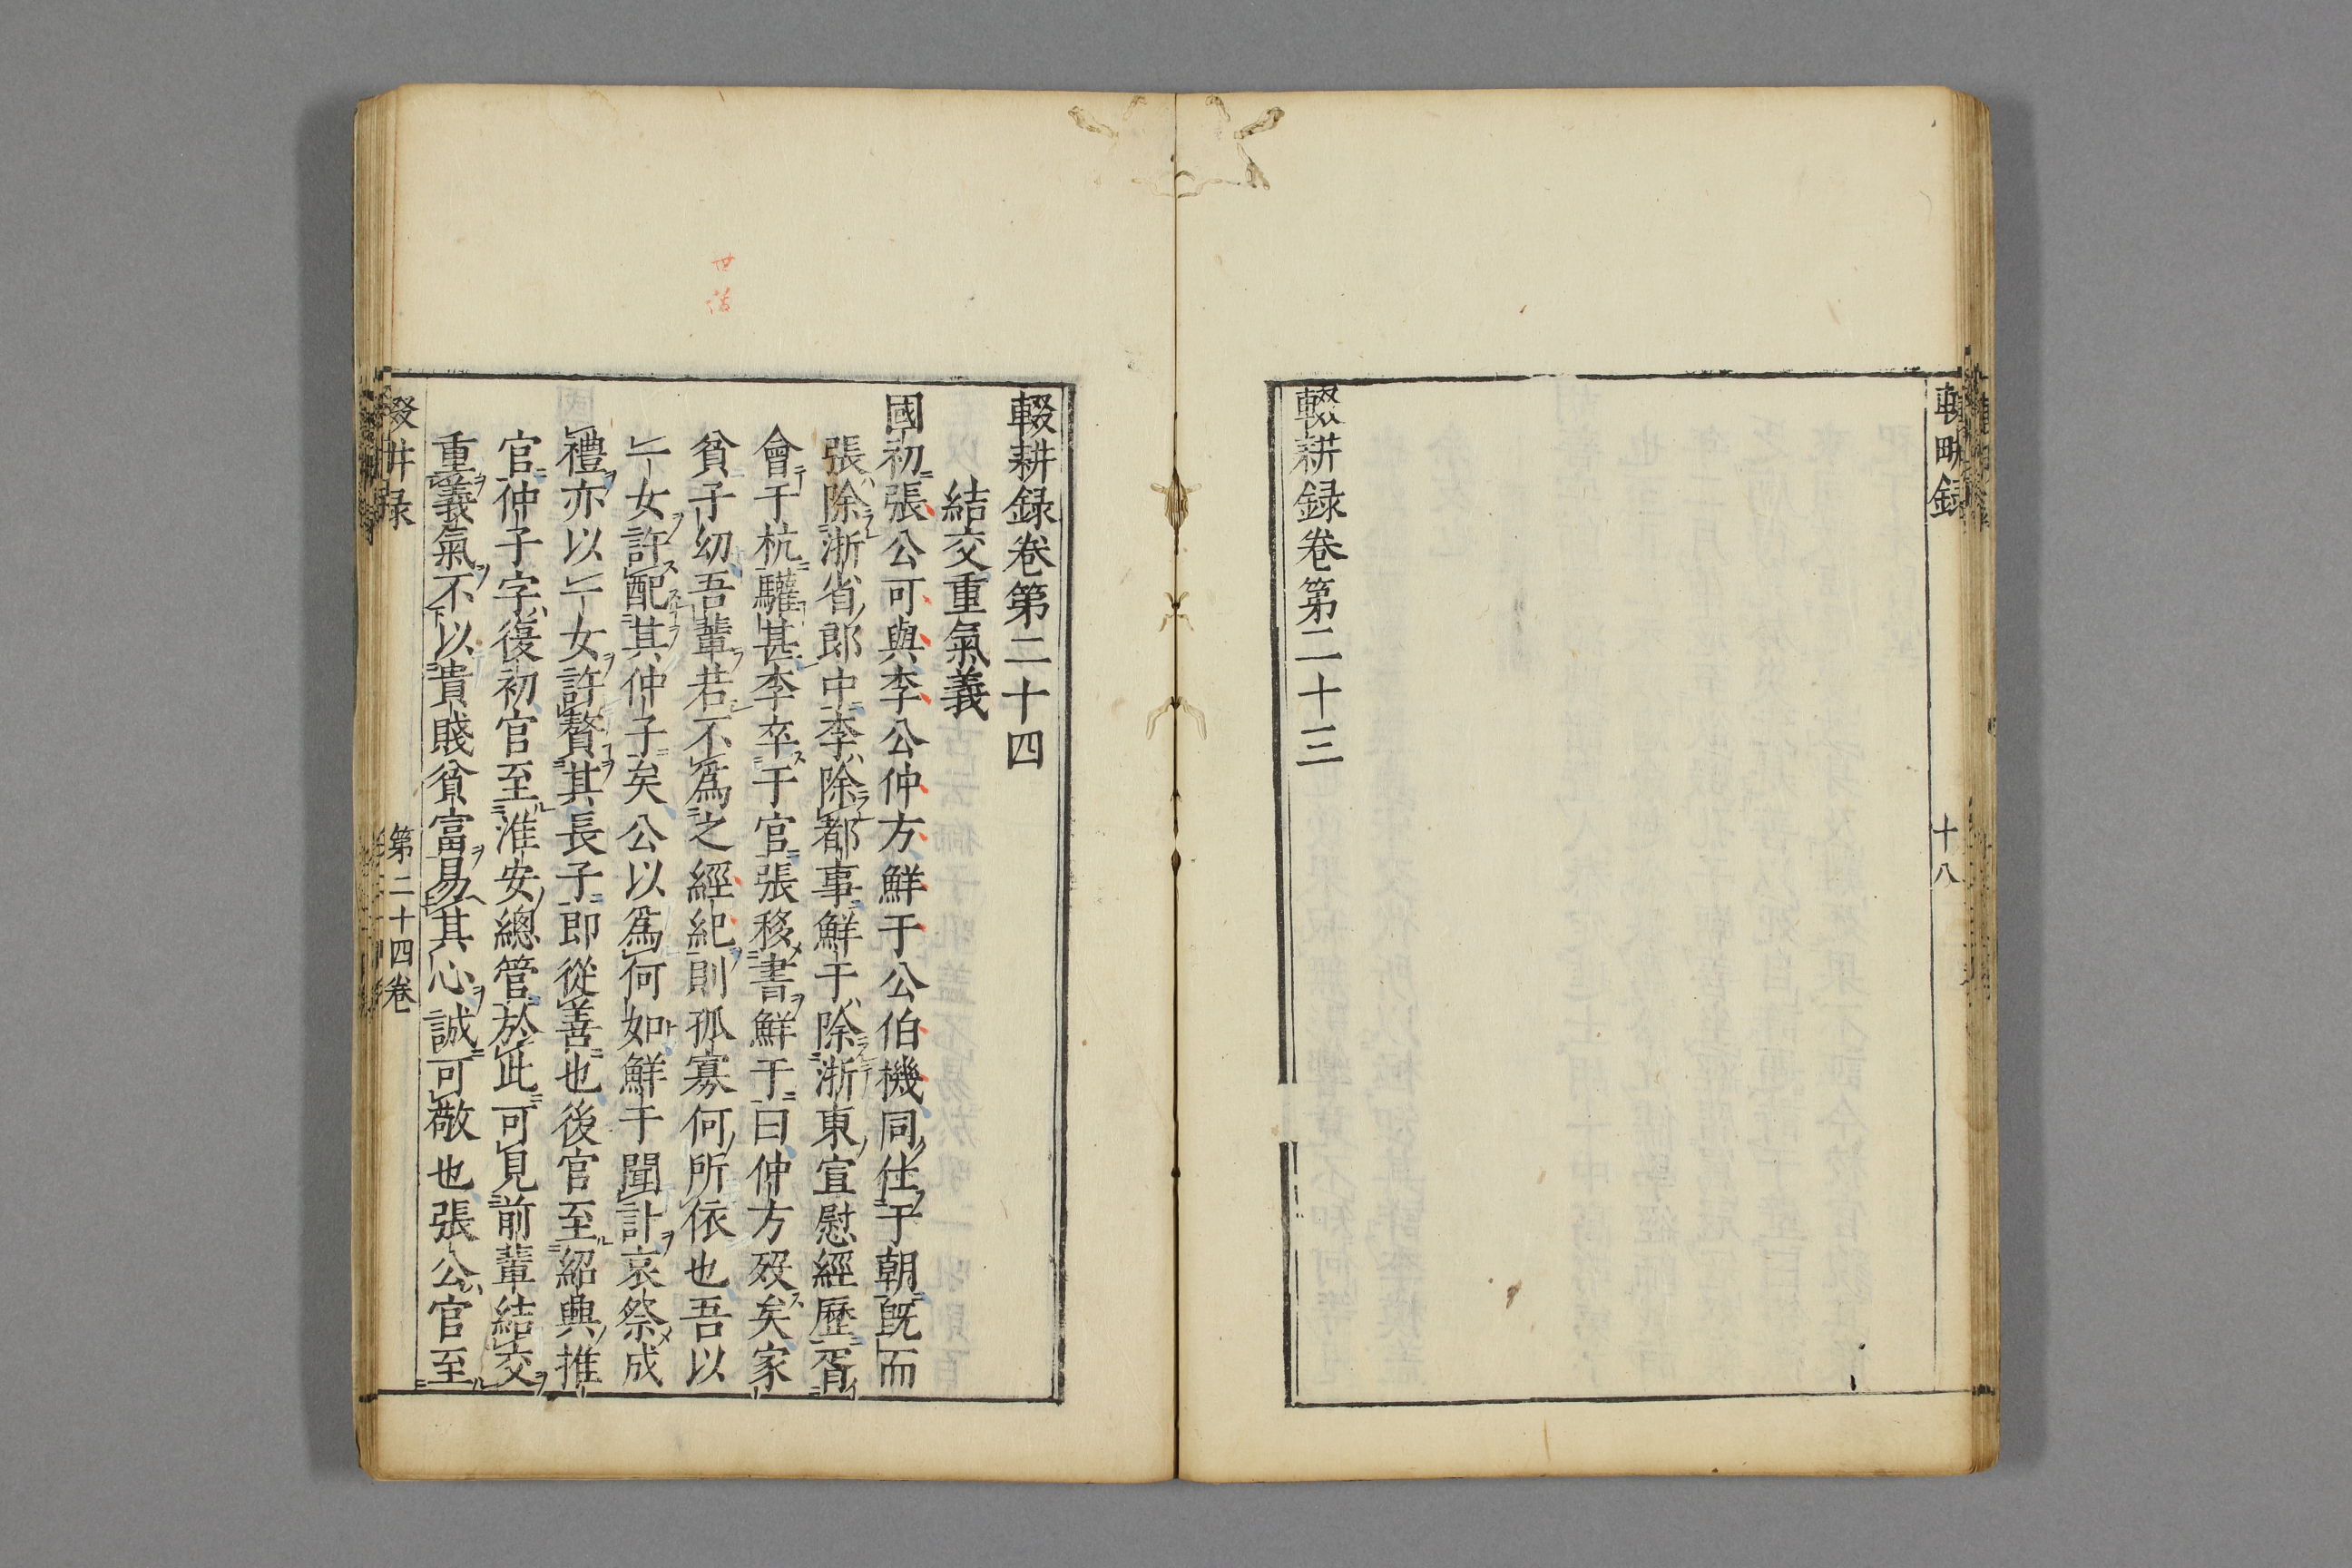 輟耕録
十八
輟耕録卷第二十三
輟耕録卷第二十四
結交重氣義
國初張公可與李公仲方鮮于公伯機同仕于朝既而
張除浙省郎中李除都事鮮于除浙東宣慰經歷胥
會于杭驩甚李卒于官張移書鮮于曰仲方歿矣家
貧子幼吾輩若不爲之經紀則孤寡何所依也吾以
一女許配其仲子矣公以爲何如鮮于聞訃哀祭成
禮亦以一女許贅其長子即從善也後官至紹興推
官仲子字復初官至淮安總管於此可見前輩結交
重義氣不以貴賤貧富易其心誠可敬也張公官至
輟耕录
第二十四卷